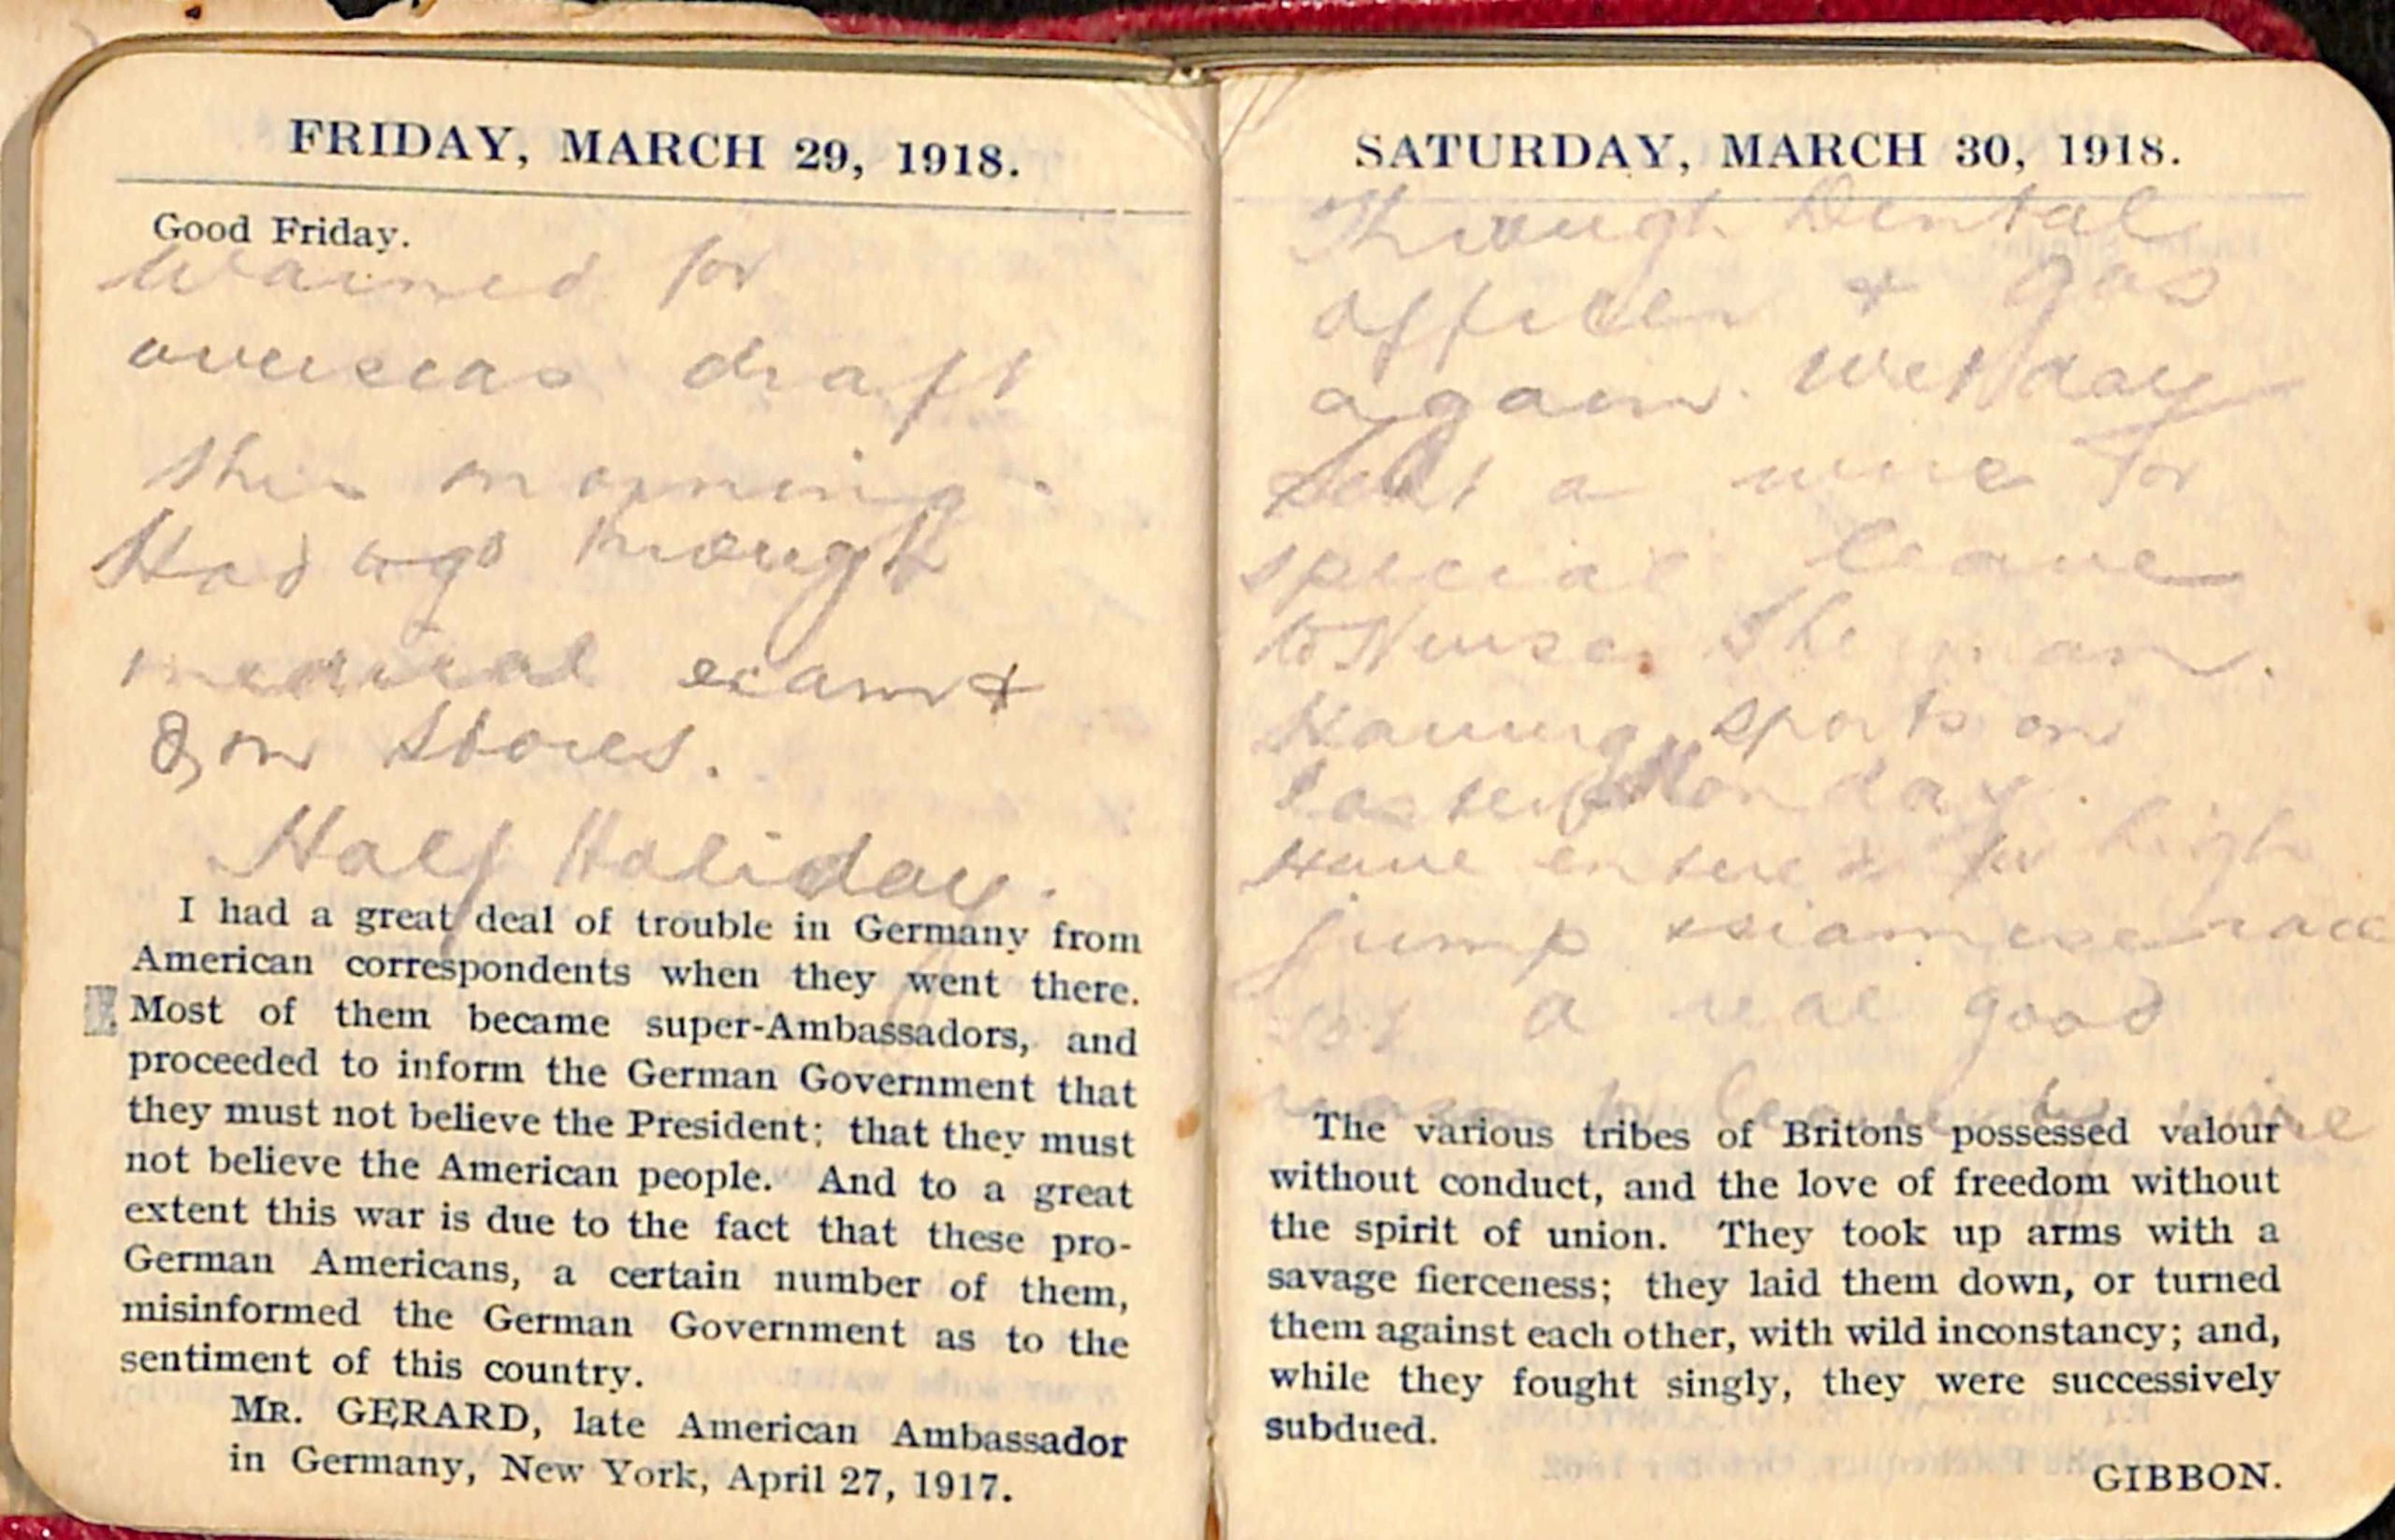 FRIDAY, MARCH 29, 1918.
Good Friday.
Warned for
overseas draft
this morning.
Had to go through
medical exam &
Qm Stores.
Half Holiday.
I had a great deal of trouble in Germany from
American correspondents when they went there.
Most of them became super-Ambassadors, and
proceeded to inform the German Government that
they must not believe the President; that they must
not believe the American people. And to a great
extent this war is due to the fact that these pro-
German Americans, a certain number of them,
misinformed the German Government as to the
sentiment of this country.
MR. GERARD, late American Ambassador
in Germany, New York, April 27, 1917.
SATURDAY, MARCH 30, 1918.
Through Dental
officer & gas
again. Wet day
Sent a wire for
special leave
to Nurse. The man.
Having sports on
Easter Monday.
Have entered for high
jump & siamese race
a real good
leave by wire
The various tribes of Britons possessed valour
without conduct, and the love of freedom without
the spirit of union. They took up arms with a
savage fierceness; they laid them down, or turned
them against each other, with wild inconstancy; and,
while they fought singly, they were successively
subdued.
GIBBON.